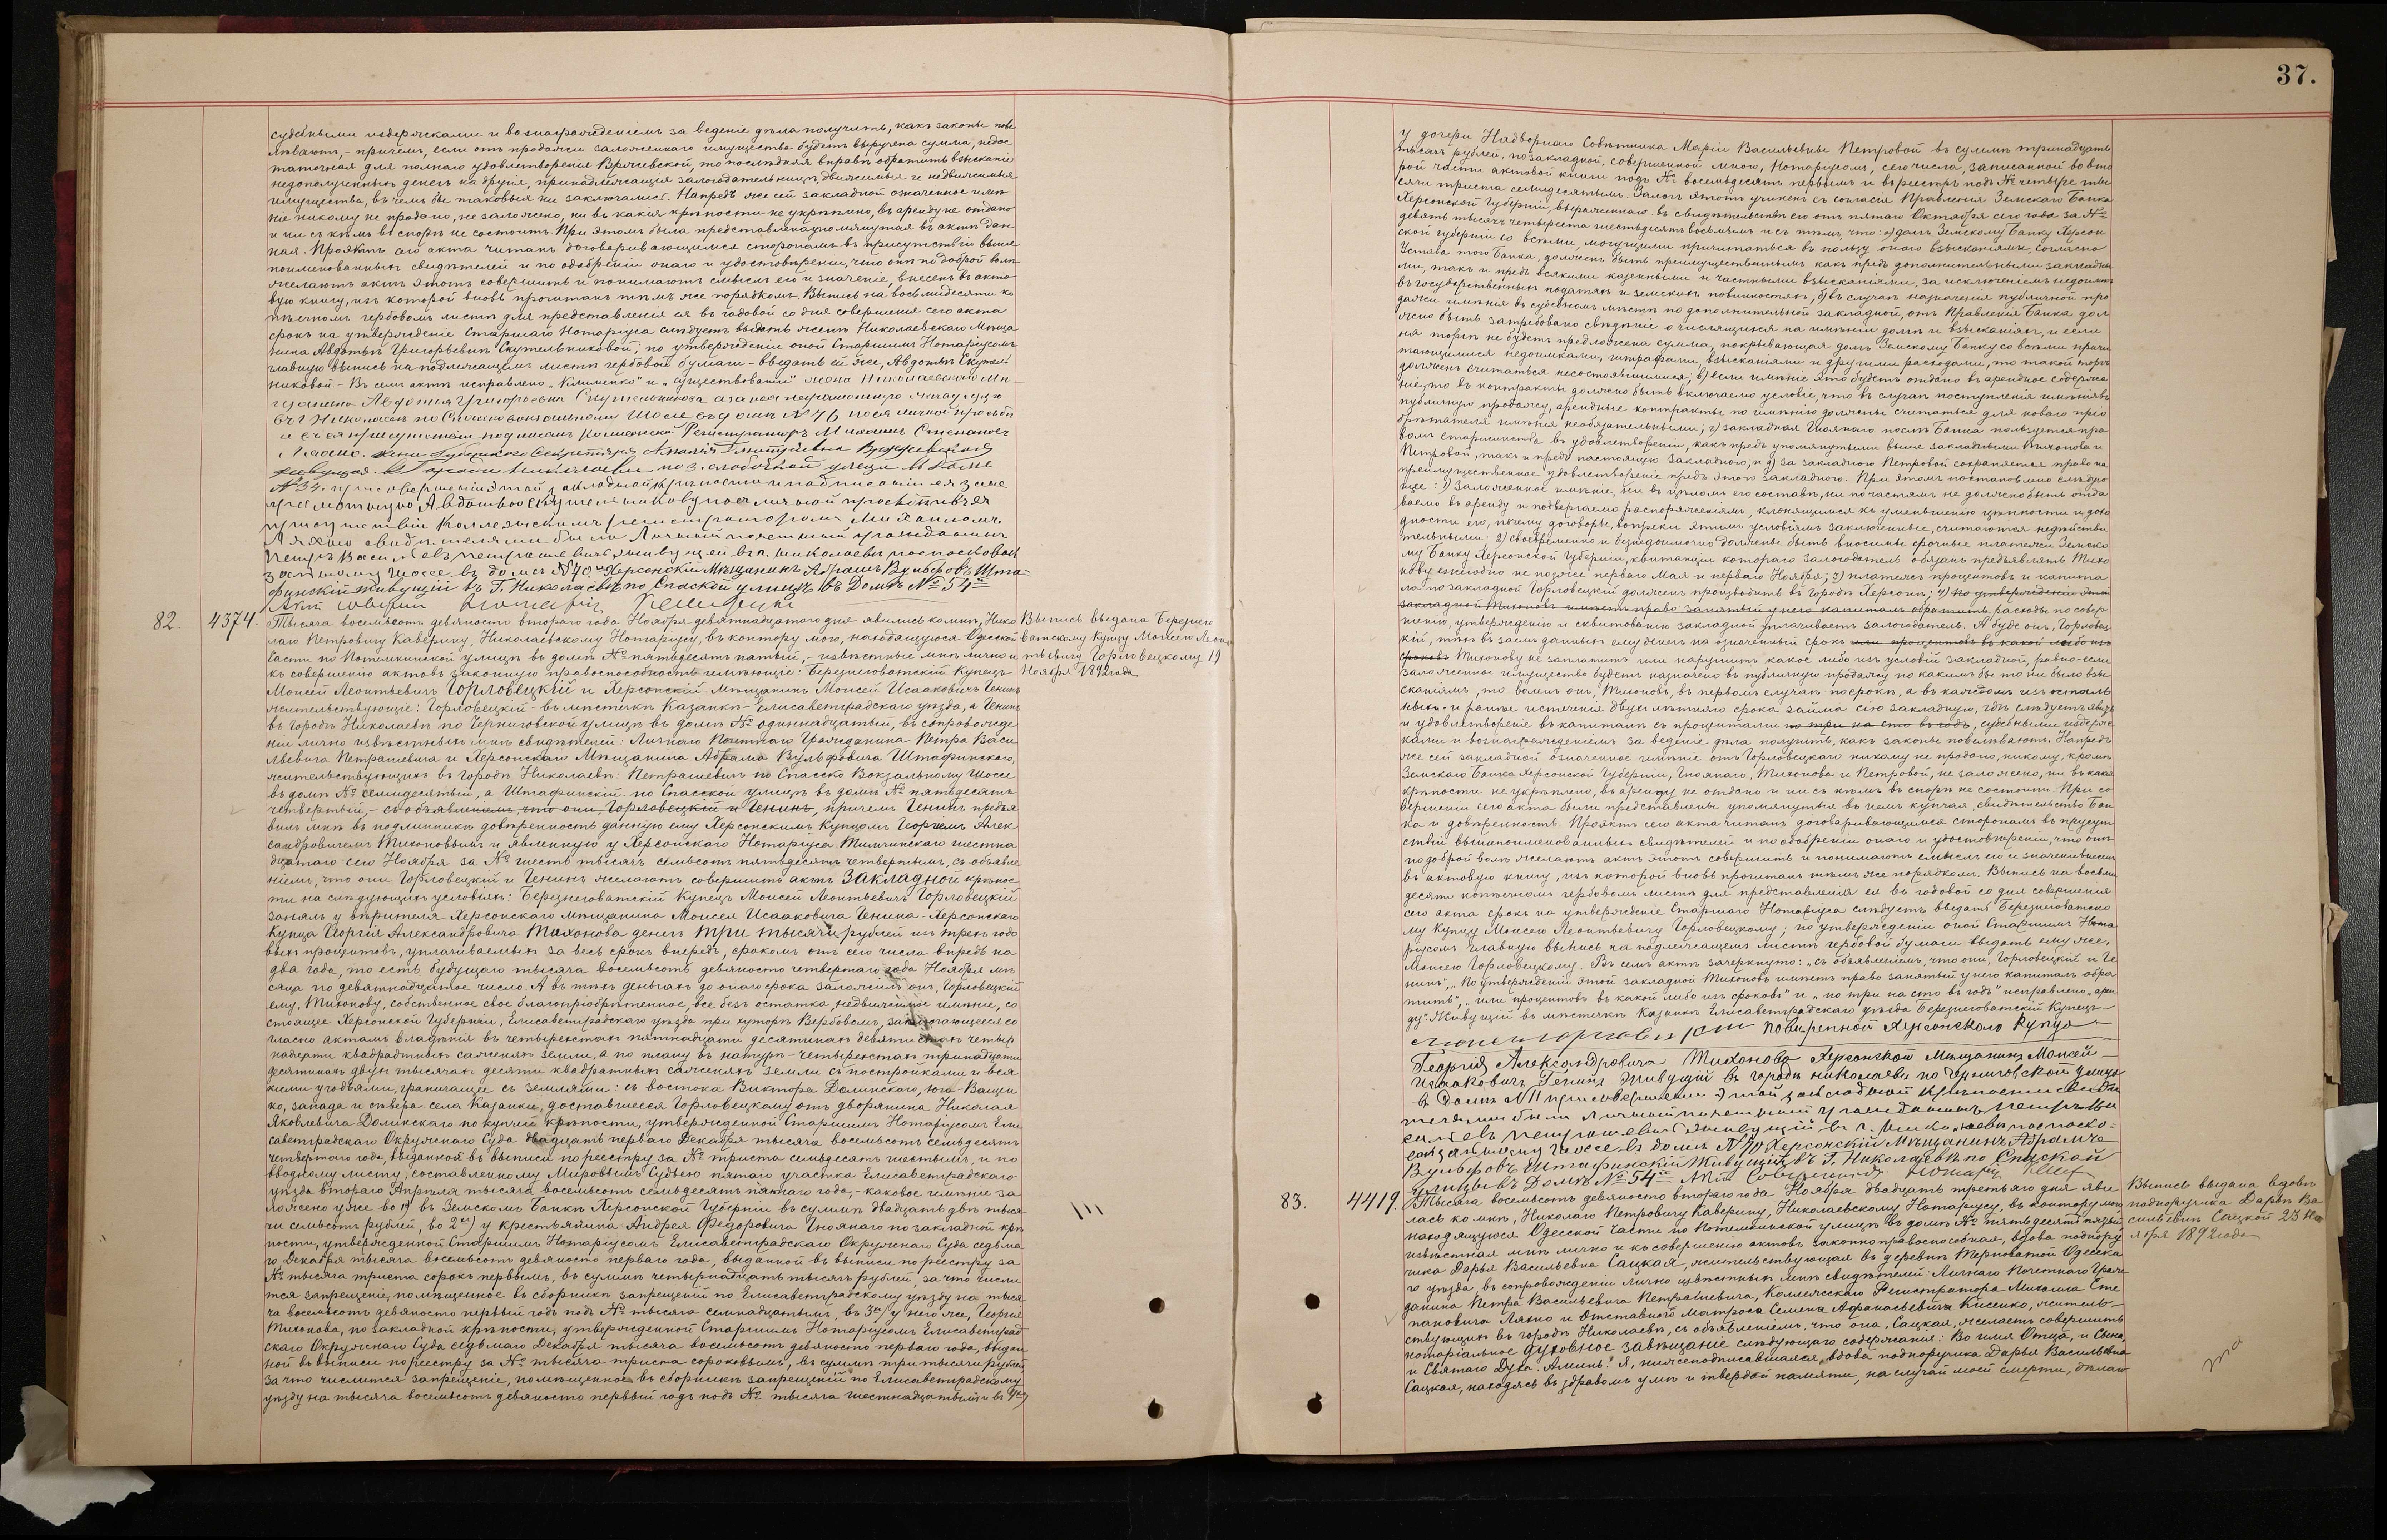 37.
судебными издержками и вознагражденіемъ за веденіе дѣла получить, какъ законы пове
лѣваютъ, - причемъ, если отъ продажи заложеннаго имущества будетъ выручена сумма, недос
таточная для полнаго удовлетворенія Вржевской, то послѣдняя вправѣ обратить взысканіе
недополученныхъ денегъ на другія, принадлежащія залогодательницѣ, движимыя и недвижимыя
имущества, въ чемъ бы таковыя ни заключались. Напредъ же сей закладной означенное имѣ
ніе никому не продано, не заложено, ни въ какія крѣпости не укрѣплено, въ аренду не отдано
и ни съ кѣмъ въ спорѣ не состоитъ. При этомъ была представлена упомянутая въ актѣ дан
ная. Проэктъ сего акта читанъ договаривающимся сторонамъ въ присутствіи выше
поименованныхъ свидѣтелей и по одобреніи онаго и удостовѣреніи, что онѣ по доброй волѣ
желаютъ актъ этотъ совершить и понимаютъ смыслъ его и значеніе, внесенъ въ акто
вую книгу, изъ которой вновь прочитанъ тѣмъ же порядкомъ. Выпись на восьмидесяти ко
пѣечномъ гербовомъ листѣ для представленія ея въ годовой со дня совершенія сего акта
срокъ на утвержденіе Старшаго Нотаріуса слѣдуетъ выдать женѣ Николаевскаго Мѣща
нина Авдотьѣ Григорьевнѣ Скутельниковой; по утвержденіи оной Старшимъ Нотаріусомъ
главную выпись на подлежащемъ листѣ гербовой бумаги - выдать ей же, Авдотьѣ Скутель
никовой. - Въ семъ актѣ исправлено „Клименко" и „существованіи" жена Николаевскаго Мѣ
щанина Авдотья Григорьевна Скутельникова а за нея неграмотную живущую
въ г Николаевѣ по Спасско вокзальному Шоссе въ домѣ № 76 по ея личной просьбѣ
и въ ея присутствіи подписалъ Коллежскій Регистраторъ Михаилъ Степановъ
Ляхно. жена Губернскаго Секретаря
живущая въ Городѣ Николаевѣ по 3. слободской улицѣ въ домѣ
№ 34. при совершеніи этой закладной крѣпости и подписаніи ея за не
грамотную Авдотью Скутельникову по ея личной просьбѣ и въ ея
присутствіи Коллежскимъ регистраторомъ Михаиломъ
Ляхно свидѣтелями были Личный почетный гражданинъ
Петръ Васильевъ Петрашевичъ живущій въ г. Николаевѣ по спасковок
зальному шоссе въ домѣ № 70й Херсонскій Мѣщанинъ Абрамъ Вульфовъ Шта-
финскій живущій въ Г. Николаевѣ по Спаской улицѣ въ Домѣ № 54й
Актъ совершилъ Нотаріусъ
82. 4374. Тысяча восемьсотъ девяносто втораго года Ноября девятнадцатаго дня явились ко мнѣ, Нико
лаю Петровичу Каверину, Николаевскому Нотаріусу, въ контору мою, находящуюся Одесской
Части по Потемкинской улицѣ въ домѣ № пятьдесятъ пятый, - извѣстные мнѣ лично и
къ совершенію актовъ законную правоспособность имѣющіе: Березнеговатскій Купецъ
Моисей Леонтьевичъ Горловецкій и Херсонскій мѣщанинъ Моисей Исааковичъ Генинъ
жительствующіе: Горловецкій - въ мѣстечкѣ Казанкѣ - Елисаветградскаго уѣзда, а Генинъ
въ городѣ Николаевѣ по Черниговской улицѣ въ домѣ № одиннадцатый, въ сопровожде
ніи лично извѣстныхъ мнѣ свидѣтелей: Личнаго Почетнаго Гражданина Петра Васи
льевича Петрашевича и Херсонскаго Мѣщанина Абрама Вульфовича Штафинскаго,
жительствующихъ въ городѣ Николаевѣ: Петрашевичъ по Спасско Вокзальному Шоссе
въ домѣ № семидесятый, а Штафинскій по Спасской улицѣ въ домѣ № пятьдесятъ
четвертый, - съ объявленіемъ, что они, Горловецкій и Генинъ, причемъ Генинъ предъя
вилъ мнѣ въ подлинникѣ довѣренность данную ему Херсонскимъ Купцомъ Георгіемъ Алек
сандровичемъ Тихоновымъ и явленную у Херсонскаго Нотаріуса Тимчинскаго шестна
дцатаго сего Ноября за № шесть тысячъ семьсотъ пятьдесятъ четвертымъ, съ объявле
ніемъ, что они Горловецкій и Генинъ желаютъ совершить актъ закладной крѣпос
ти на слѣдующихъ условіяхъ: Березнеговатскій Купецъ Моисей Леонтьевичъ Горловецкій
занялъ у вѣрителя Херсонскаго мѣщанина Моисея Исааковича Генина - Херсонскаго
Купца Георгія Александровича Тихонова денегъ три тысячи рублей изъ трехъ годо
выхъ процентовъ, уплачиваемыхъ за весь срокъ впередъ, срокомъ отъ сего числа впредь на
два года, то есть будущаго тысяча восемьсотъ девяносто четвертаго года Ноября мѣ
сяца по девятнадцатое число. А въ тѣхъ деньгахъ до онаго срока заложилъ онъ, Горловецкій
ему, Тихонову, собственное свое благопріобрѣтенное, все безъ остатка, недвижимое имѣніе, со
стоящее Херсонской Губерніи, Елисаветградскаго уѣзда при хуторѣ Вербовомъ, заключающееся со
гласно актамъ владѣнія въ четырехстахъ пятнадцати десятинахъ девятистахъ четыр
надцати квадратныхъ саженяхъ земли, а по плану въ натурѣ - четырехстахъ тринадцати
десятинахъ двухъ тысячахъ десяти квадратныхъ саженяхъ земли съ постройками и вся
кими угодьями, граничащее съ землями: съ востока Виктора Долинскаго, юга - Ващен
ко, запада и сѣвера - села Казанки, доставшееся Горловецкому отъ дворянина Николая
Яковлевича Долинскаго по купчей крѣпости, утвержденной Старшимъ Нотаріусомъ Ели
саветградскаго Окружнаго Суда двадцать перваго Декабря тысяча восемьсотъ семьдесятъ
четвертаго года, выданной въ выписи по реестру за № триста семьдесятъ шестымъ, и по
вводному листу, составленному Мировымъ Судьею пятаго участка Елисаветградскаго
уѣзда втораго Апрѣля тысяча восемьсотъ семьдесятъ пятаго года, - каковое имѣніе за
ложено уже во 1х) въ Земскомъ Банкѣ Херсонской Губерніи въ суммѣ двадцать двѣ тыся
чи семьсотъ рублей, во 2хъ) у крестьянина Андрея Федоровича Гноянаго по закладной крѣ
пости, утвержденной Старшимъ Нотаріусомъ Елисаветградскаго Окружнаго Суда седьма
го Декабря тысяча восемьсотъ девяносто перваго года, выданной въ выписи по реестру за
№ тысяча триста сорокъ первымъ, въ суммѣ четырнадцать тысячъ рублей, за что числи
тся запрещеніе, помѣщенное въ сборникѣ запрещеній по Елисаветградскому уѣзду на тыся
ча восемьсотъ девяносто первый годъ подъ № тысяча семнадцатымъ, въ 3хъ) у него же, Георгія
Тихонова, по закладной крѣпости, утвержденной Старшимъ Нотаріусомъ Елисаветград
скаго Окружнаго Суда седьмаго Декабря тысяча восемьсотъ девяносто перваго года, выдан
ной въ выписи по реестру за № тысяча триста сороковымъ, въ суммѣ три тысячи рублей
за что числится запрещеніе, помѣщенное въ сборникѣ запрещеній по Елисаветградскому
уѣзду на тысяча восемьсотъ девяносто первый годъ подъ № тысяча шестнадцатымъ и въ 4хъ)
Выпись выдана Березнего
ватскому Купцу Моисею Леон
тьевичу Горловецкому 19
Ноября 1892 года
у дочери Надворнаго Совѣтника Маріи Васильевны Петровой въ суммѣ тринадцать
тысячъ рублей, по закладной, совершенной мною, Нотаріусомъ, сего числа, записанной во вто
рой части актовой книги подъ № восемьдесятъ первымъ и въ реестрѣ подъ № четыре ты
сячи триста семидесятымъ. Залогъ этотъ учиненъ съ согласія Правленія Земскаго Банка
Херсонской Губерніи, выраженнаго въ свидѣтельствѣ его отъ пятаго Октября сего года за №
девять тысячъ четыреста шестьдесятъ восьмымъ и съ тѣмъ, что: а) долгъ Земскому Банку Херсон
ской губерніи со всѣми, могущими причитаться въ пользу онаго взысканіями, согласно
Устава того Банка, долженъ быть преимущественнымъ какъ предъ дополнительными закладны
ми, такъ и предъ всякими казенными и частными взысканіями, за исключеніемъ недоимокъ
въ государственныхъ податяхъ и земскихъ повинностяхъ, б) въ случаѣ назначенія публичной про
дажи имѣнія въ судебномъ мѣстѣ по дополнительной закладной, отъ Правленія Банка дол
жно быть затребовано свѣдѣніе о числящихся на имѣніи долгѣ и взысканіяхъ, и если
на торгѣ не будетъ предложена сумма, покрывающая долгъ Земскому Банку со всѣми причи
тающимися недоимками, штрафами взысканіями и другими расходами, то такой торгъ
долженъ считаться несостоявшимся; в) если имѣніе это будетъ отдано въ арендное содержа
ніе, то въ контракты должно быть включаемо условіе, что въ случаѣ поступленія имѣнія въ
публичную продажу, арендные контракты по имѣнію должны считаться для новаго прі
обрѣтателя имѣнія необязательными; г) закладная Гноянаго послѣ Банка пользуется пра
вомъ старшинства въ удовлетвореніи, какъ предъ упомянутыми выше закладными Тихонова и
Петровой, такъ и предъ настоящею закладною, и д) за закладною Петровой сохраняется право на
преимущественное удовлетвореніе предъ этою закладною. При этомъ постановлено слѣдую
щее: 1) Заложенное имѣніе, ни въ цѣломъ его составѣ, ни по частямъ не должно быть отда
ваемо въ аренду и подвергаемо распоряженіямъ, клонящимся къ уменьшенію цѣнности и дохо
дности его, почему договоры, вопреки этимъ условіямъ заключенные, считаются недѣйстви
тельными: 2) своевременно и безнедоимочно должны быть вносимы срочные платежи Земско
му Банку Херсонской Губерніи, квитанціи котораго Залогодатель обязанъ предъявлять Тихо
нову ежегодно не позже перваго Мая и перваго Ноября; 3) платежъ процентовъ и капита
ла по закладной Горловецкій долженъ производить въ Городѣ Херсонѣ; 4) по утвержденіи этой
закладной Тихоновъ имѣетъ право занятый у него капиталъ обратить расходы по совер
шенію, утвержденію и сквитованію закладной уплачиваетъ залогодатель. А буде онъ, Горловец
кій, тѣхъ въ заемъ данныхъ ему денегъ на означенный срокъ или процентовъ въ какой либо изъ
сроковъ Тихонову не заплатитъ или нарушитъ какое либо изъ условій закладной, равно если
заложенное имущество будетъ назначено въ публичную продажу по какимъ бы то ни было взы
сканіямъ, то воленъ онъ, Тихоновъ, въ первомъ случаѣ - по срокѣ, а въ каждомъ изъ осталь
ныхъ - и ранѣе истеченія двухлѣтняго срока займа сію закладную, гдѣ слѣдуетъ явить
и удовлетвореніе въ капиталѣ съ процентами по три на сто въ годъ, судебными издерж
ками и вознагражденіемъ за веденіе дѣла получить, какъ законы повелѣваютъ. Напредъ
же сей закладной означенное имѣніе отъ Горловецкаго никому не продано, никому, кромѣ
Земскаго Банка Херсонской Губерніи, Гноянаго, Тихонова и Петровой, не заложено, ни въ какія
крѣпости не укрѣплено, въ аренду не отдано и ни съ кѣмъ въ спорѣ не состоитъ. При со
вершеніи сего акта были представлены упомянутыя въ немъ купчая, свидѣтельство Бан
ка и довѣренность. Проэктъ сего акта читанъ договаривающимся сторонамъ въ присут
ствіи вышепоименованныхъ свидѣтелей и по одобреніи онаго и удостовѣреніи, что онѣ
по доброй волѣ желаютъ актъ этотъ совершить и понимаютъ смыслъ его и значеніе внесенъ
въ актовую книгу, изъ которой вновь прочитанъ тѣмъ же порядкомъ. Выпись на восьми
десяти копѣечномъ гербовомъ листѣ для представленія ея въ годовой со дня совершенія
сего акта срокъ на утвержденіе Старшаго Нотаріуса слѣдуетъ выдать Березнеговатско
му Купцу Моисею Леонтьевичу Горловецкому; по утвержденіи оной Старшимъ Нота
ріусомъ главную выпись на подлежащемъ листѣ гербовой бумаги выдать ему же,
Моисею Горловецкому. Въ семъ актѣ зачеркнуто: „съ объявленіемъ, что они, Горловецкій и Ге
нинъ", „по утвержденіи этой закладной Тихоновъ имѣетъ право занятый у него капиталъ обра
тить", „или процентовъ въ какой либо изъ сроковъ" и „по три на сто въ годъ" исправлено „арен
ду". Живущій въ мѣстечкѣ Казанкѣ Елисаветградскаго уѣзда Березнеговатскій Купецъ
Моисей Горловецкій Повѣренный Херсонскаго Купца
Георгія Александровича Тихонова Херсонскій Мѣщанинъ Моисей
Исааковичъ Генинъ Живущій въ городѣ Николаевѣ по Черниговской улицѣ
въ Домѣ № 11 при совершеніи этой закладной крѣпости свидѣ
телями были Личный почетный гражданинъ Петръ Ва
сильевъ Петрашевичъ живущій въ г. Николаевѣ по спаско-
вокзальному шоссе въ домѣ № 70 Херсонскій Мѣщанинъ Абрамъ
Вульфовъ Штафинскій Живущій въ Г. Николаевѣ по Спаской
улицѣ въ Домѣ № 54й Актъ Совершилъ Нотаріусъ
83. 4419. Тысяча восемьсотъ девяносто втораго года Ноября двадцать третьяго дня яви
лась ко мнѣ, Николаю Петровичу Каверину, Николаевскому Нотаріусу, въ контору мою
находящуюся Одесской Части по Потемкинской улицѣ въ домѣ № пятьдесятъ пятый
извѣстная мнѣ лично и къ совершенію актовъ законно правоспособная, вдова подпору
чика Дарья Васильевна Сацкая, жительствующая въ деревнѣ Терноватой Одесска
го уѣзда, въ сопровожденіи лично извѣстныхъ мнѣ свидѣтелей: Личнаго Почетнаго Граж
данина Петра Васильевича Петрашевича, Коллежскаго Регистратора Михаила Сте
пановича Ляхно и Отставнаго матроса Семена Афанасьевича Кисенко, житель-
ствующихъ въ городѣ Николаевѣ, съ объявленіемъ, что она, Сацкая, желаетъ совершить
нотаріальное духовное завѣщаніе слѣдующаго содержанія: Во имя Отца, и Сына,
и Святаго Духа. Аминь. Я, нижеподписавшаяся, вдова подпоручика Дарья Васильевна
Сацкая, находясь въ здравомъ умѣ и твердой памяти, на случай моей смерти, дѣлаю
Выпись выдана вдовѣ
подпоручика Дарьѣ Ва
сильевнѣ Сацкой 23 Но
ября 1892 года